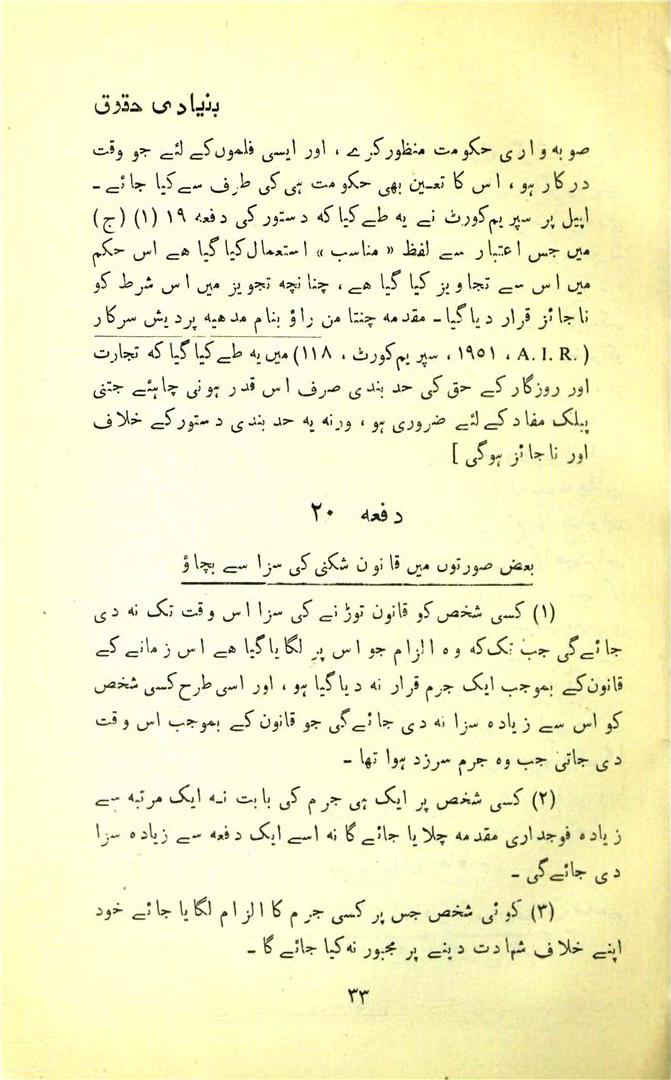 بنیادی حقوق
صوبہ واری حکومت منظور کرے ، اور ایسی فلموں کے لئے جو وقت
درکار ہو ، اس کا تعین بھی حکومت ہی کی طرف سے کیا جائے ـ
اپیل پر سپریم کورٹ نے یہ طے کیا کہ دستور کی دفعہ ۱۹ (۱) (ج)
میں جس اعتبار سے لفظ « مناسب » استعمال کیا گیا ھے اس حکم
میں اس سے تجاویز کیا گیا ھے ، چنانچہ تجویز میں اس شرط کو
ناجائز قرار دیا گیا ـ مقدمہ چنتا من راؤ بنام مدھیہ پردیش سرکار
( .A. I. R ، ۱۹۵۱ ، سپریم کورٹ ، ۱۱۸) میں یہ طے کیا گیا کہ تجارت
اور روزگار کے حق کی حد بندی صرف اس قدر ہونی چاہئے جتنی
پبلک مفاد کے لئے ضروری ہو ، ورنہ یہ حد بندی دستور کے خلاف
اور ناجائز ہوگی ]
دفعہ ۲۰
بعض صورتوں میں قانون شکنی کی سزا سے بچاؤ
(۱) کسی شخص کو قانون توڑنے کی سزا اس وقت تک نہ دی
جائے گی جب تک کہ وہ الزام جو اس پر لگایا گیا ھے اس زمانے کے
قانون کے بموجب ایک جرم قرار نہ دیا گیا ہو ، اور اسی طرح کسی شخص
کو اس سے زیادہ سزا نہ دی جائے گی جو قانون کے بموجب اس وقت
دی جاتی جب وہ جرم سرزد ہوا تھا ـ
(۲) کسی شخص پر ایک ہی جرم کی بابت نہ ایک مرتبہ سے
زیادہ فوجداری مقدمہ چلایا جائے گا نہ اسے ایک دفعہ سے زیادہ سزا
دی جائے گی ـ
(۳) کوئی شخص جس پر کسی جرم کا الزام لگایا جائے خود
اپنے خلاف شہادت دینے پر مجبور نہ کیا جائے گا ـ
۳۳